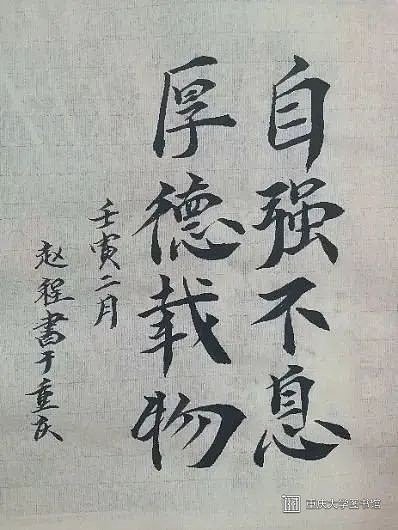 自强不息
厚德载物
壬寅二月
赵程书于重庆
重庆大学图书馆